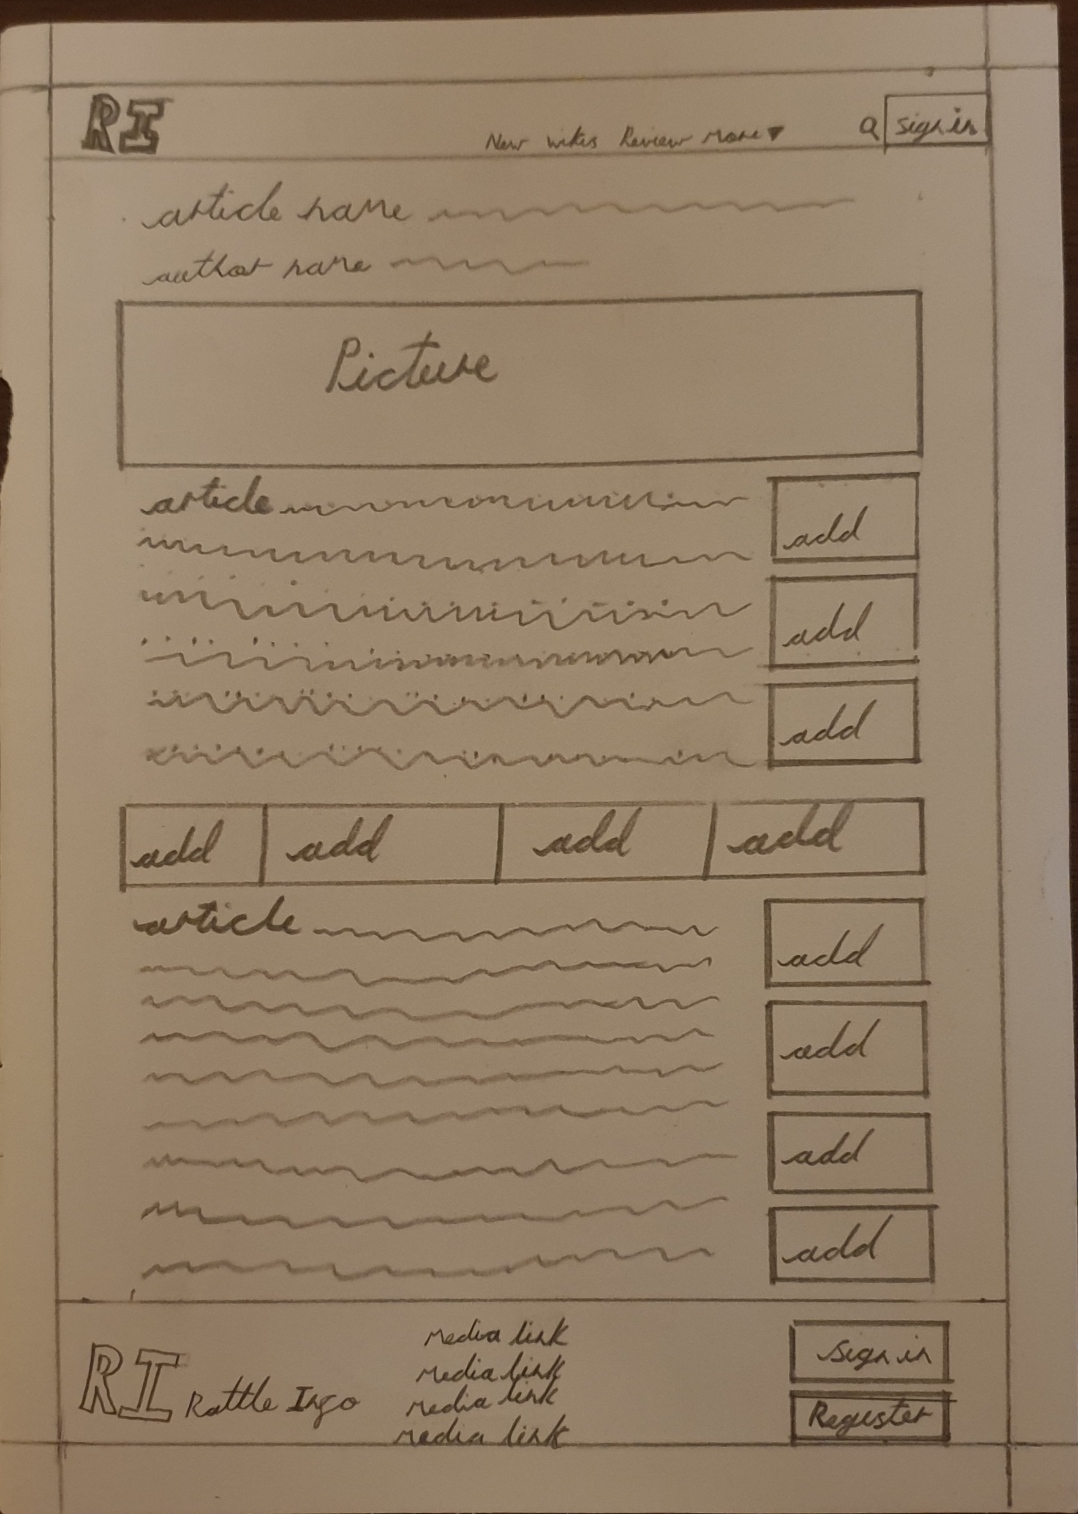 RI
New wikis Review More ▼
Sign in
article name
author name
Picture
article
add
add
add
add add add add
article
add
add
add
add
RI Rattle Ingo
media link
media link
media link
media link
Sign in
Register